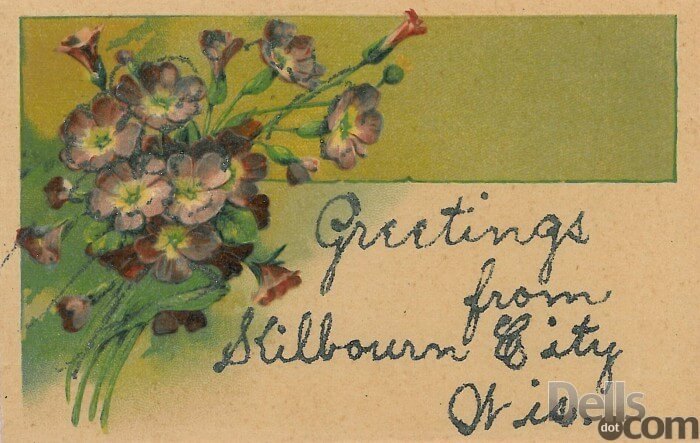 Greetings
from
Kilbourn City
Wis.
Dells
dot com